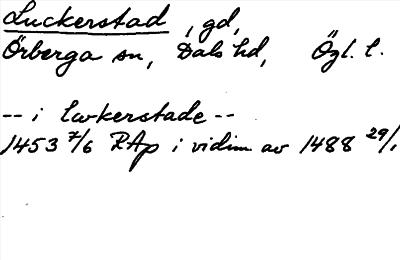 Luckerstad, gd,
Örberga sn, Dals hd, Ögl. l.
-- i lwkerstade --
1453 7/6 RAp i vidim av 1488 29/1